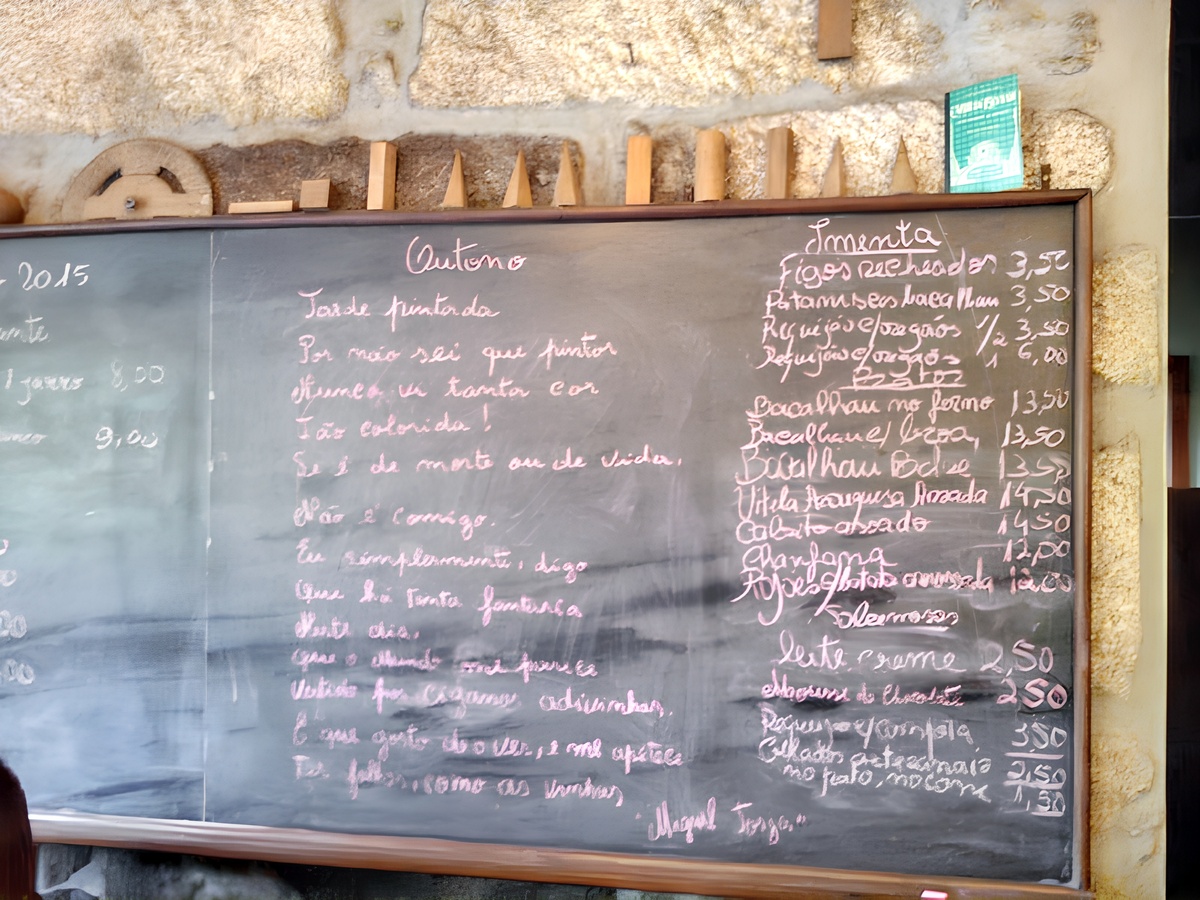 2015
1 jarro 8,00
9,00
Outono
Tarde pintada
Por não sei que pintor
Nunca vi tanta cor
Tão colorida!
Se é de morte ou de vida,
Não é comigo.
Eu simplesmente, digo
Que há tanta fantasia
Neste dia,
Que o Mundo me parece
Vestido por ciganas adivinhas,
E que gosto de o ver, e me apetece
Ter folhas, como as vinhas
"Miguel Torga."
Imenta
Figos recheados 3,50
Pataniscas bacalhau 3,50
Requijão c/oregãos 1/2 3,50
Requijão c/oregãos 1 6,00
Pratos
Bacalhau no forno 13,50
Bacalhau c/ broa, 13,50
Bacalhau 13,50
Vitela Arouquesa Assada 14,50
Cabrito assado 14,50
Chanfana 12,00
Rojões c/batata 12,00
leite creme 2,50
Mousse de Chocolate 2,50
Requeijão c/compota 3,50
2,50
no prato, no cone 1,50